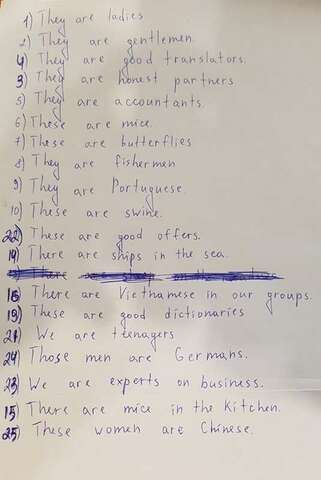 1) They are ladies
2) They are gentlemen.
4) They are good translators.
3) They are honest partners
5) They are accountants.
6) These are mice.
7) These are butterflies
8) They are fishermen
9) They are Portuguese.
10) These are swine.
22) These are good offers.
14) There are ships in the sea.
There
18) There are Vietnamese in our groups.
19) These are good dictionaries
21) We are teenagers
24) Those men are Germans.
23) We are experts on business.
15) There are mice in the kitchen.
25) These women are Chinese.